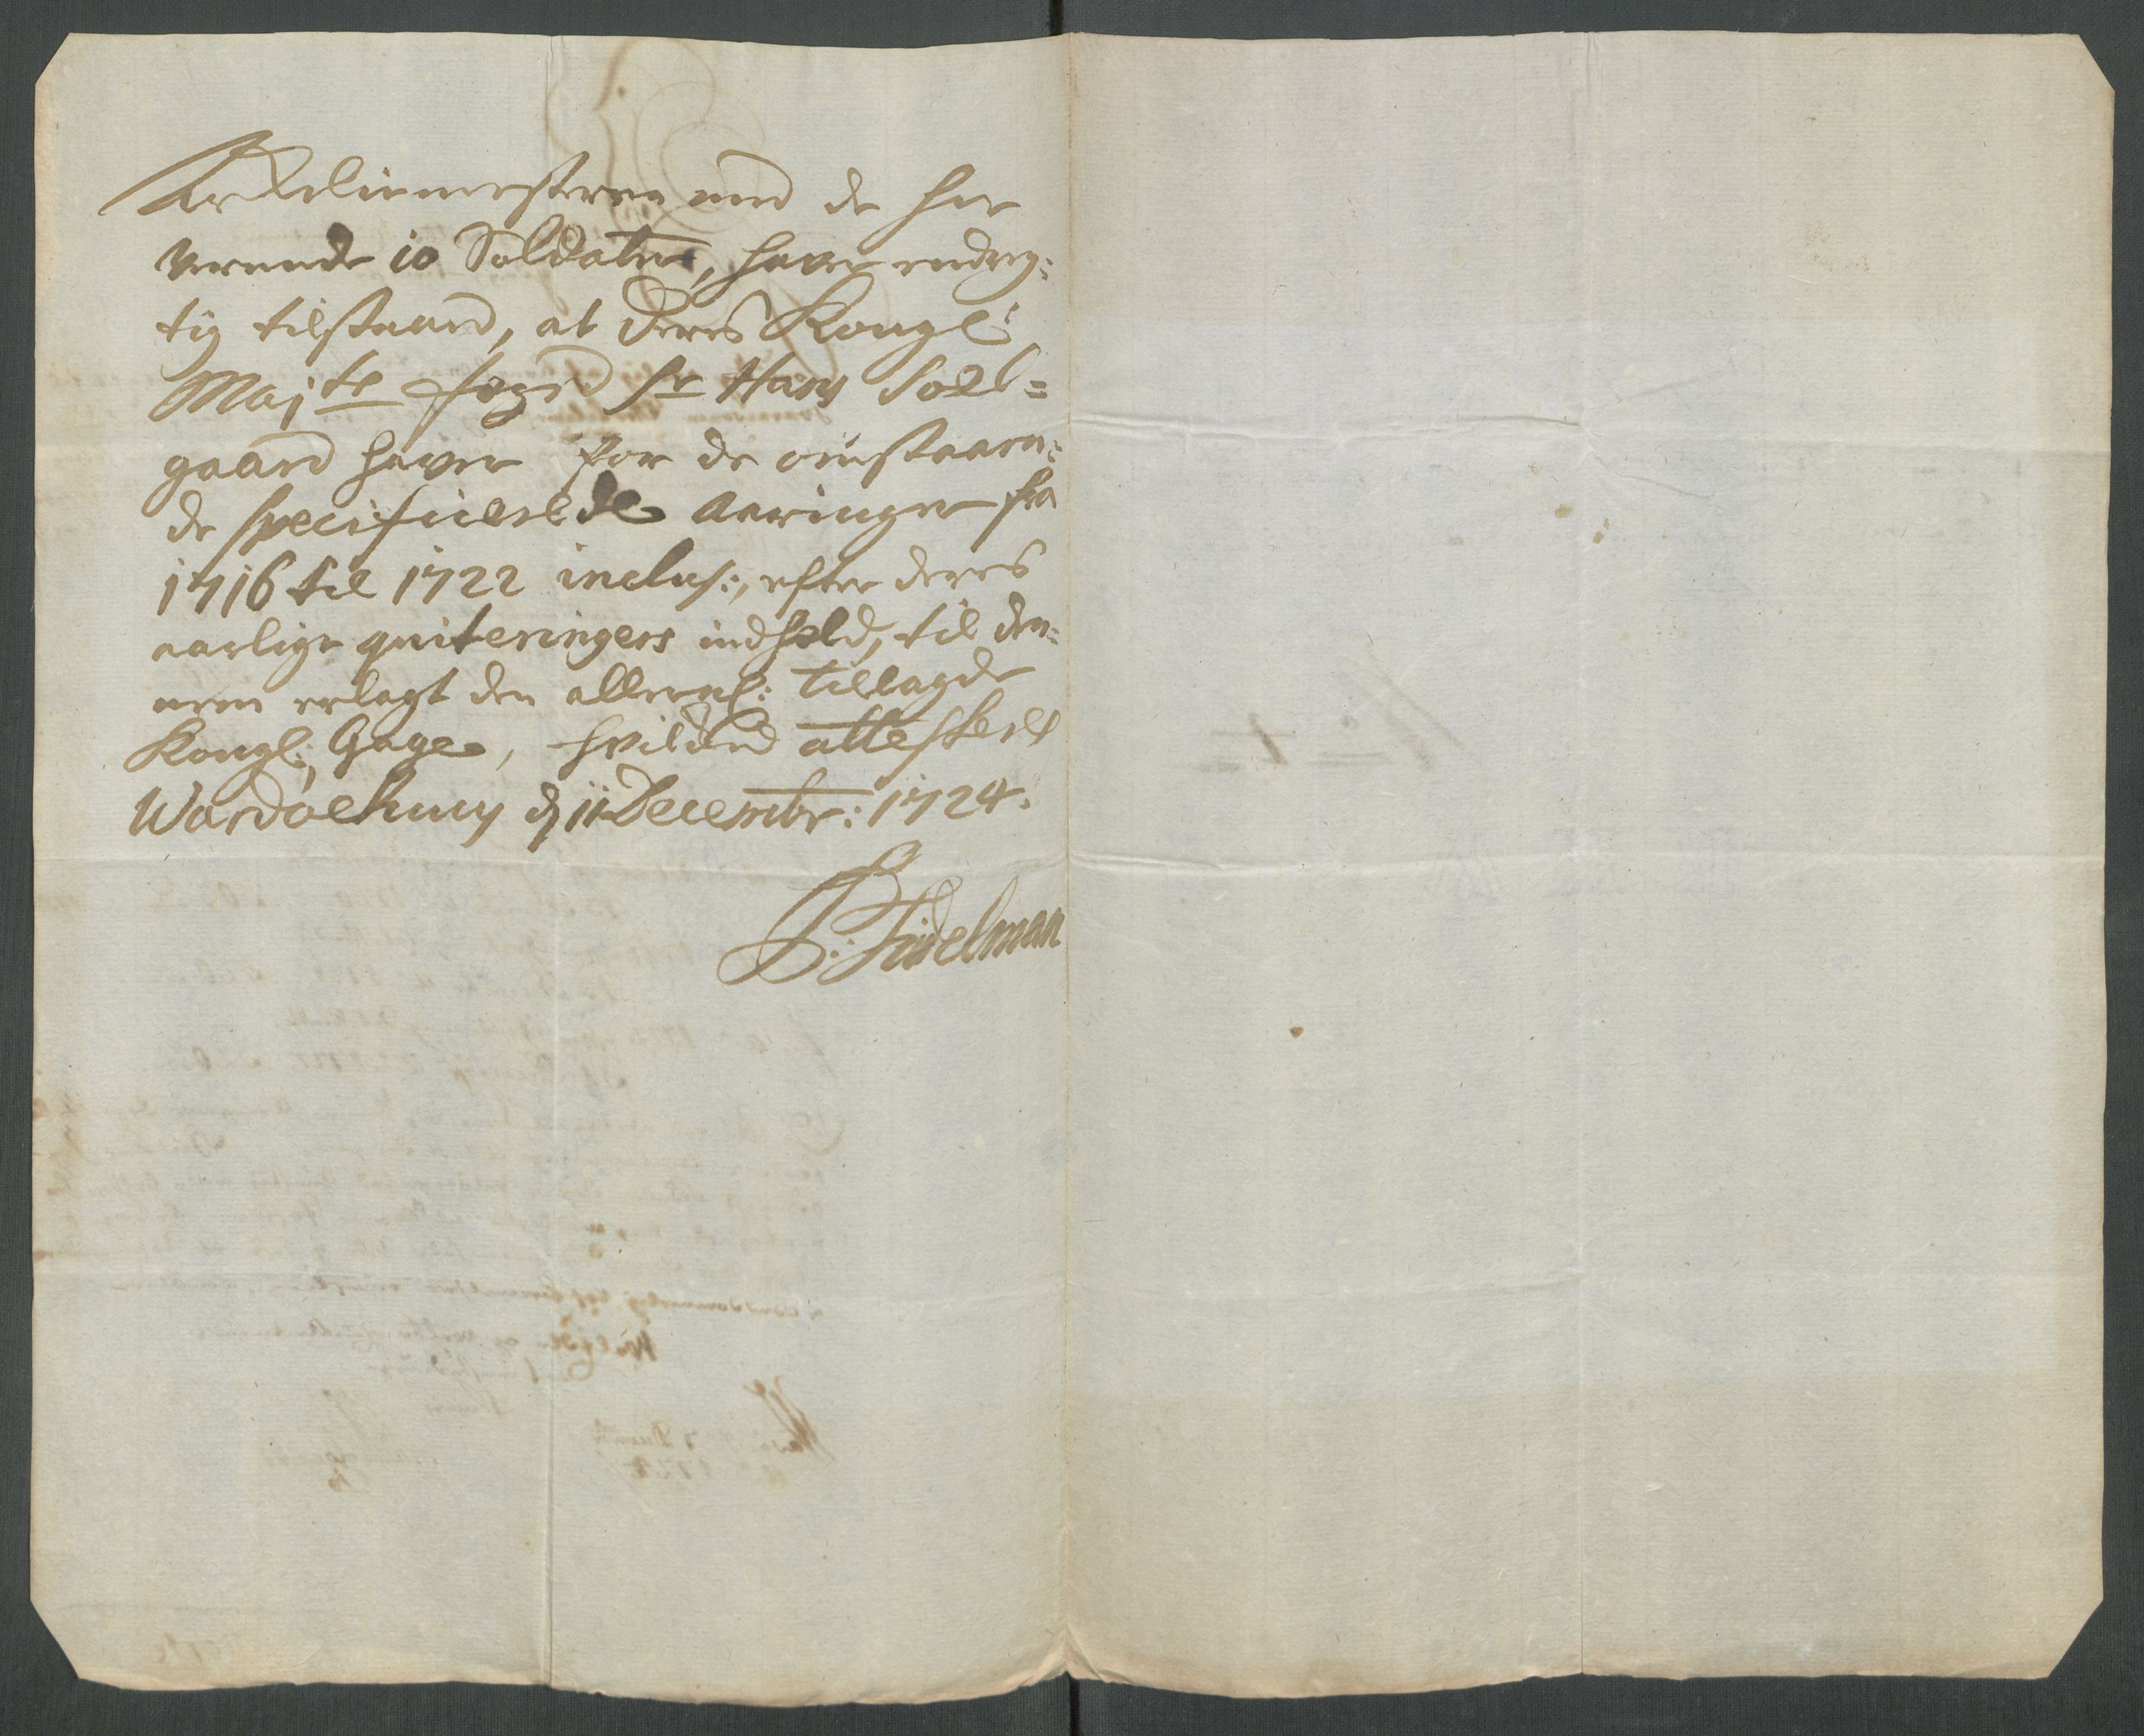 Arkeliemesteren med de her
værende 10 Soldater, haver endreg:
tig tilstaaed, at deres Kongl:
Majts fogd Sr Hans Soel=
gaard haver for de omstaaen:
de specificerede aaringer fra
1716 til 1722 inclus:, efter deres
aarlige qviteringers indhold, til den:
nem erlagt den allern: tillagde
Kongl: Gage, hvilked attesteres
Wardøehuus d 11 Decembr: 1724.
Fridelman